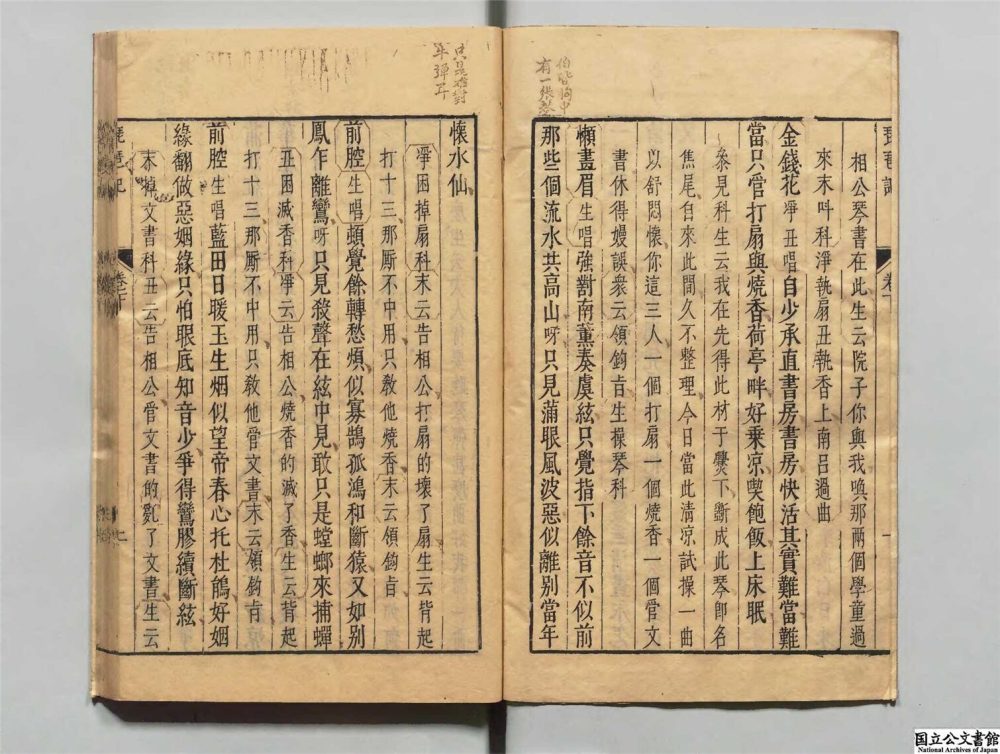 伯喈胸中
有一張琴
琵琶記
卷二
相公琴書在此生云院子你與我喚那兩個學童過
來末呌科淨執扇丑執香上南吕過曲
金錢花淨丑唱自少承直書房書房快活其實難當難
當只管打扇與燒香荷亭畔好乗凉喫飽飯上床眠
叅見科生云我在先得此材于爨下斵成此琴卽名
焦尾自來此間久不整理今日當此清凉試操一曲
以舒悶懷你這三人一個打扇一個燒香一個管文
書休得嫚誤衆云領鈞㫖生操琴科
懶畫眉生唱強對南薫奏虞絃只覺指下餘音不似前
那些個流水共高山呀只見蒲眼風波惡似離别當年
只是難對
年彈耳
懷水仙
淨困掉扇科末云告相公打扇的壞了扇生云背起
打十三那厮不中用只敎他燒香末云領鈞㫖
前腔生唱頓覺餘轉愁煩似寡鵠孤鴻和斷猿又如别
鳳乍離鸞呀只見殺聲在絃中見敢只是螳螂來捕蟬
丑困滅香科淨云告相公燒香的滅了香生云背起
打十三那厮不中用只敎他管文書末云領鈞㫖
前腔生唱藍田日暖玉生烟似望帝春心托杜鵑好姻
緣翻做惡姻緣只怕眼底知音少爭得鸞膠續斷絃
末掉文書科丑云告相公管文書的亂了文書生云
琵琶記
卷二
国立公文書館
National Archives of Japan